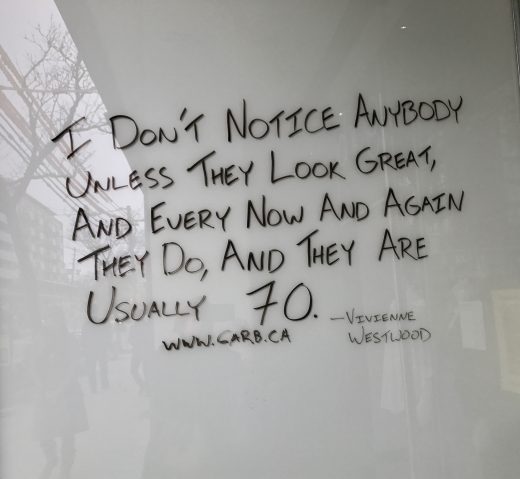 I DON'T NOTICE ANYBODY
UNLESS THEY LOOK GREAT,
AND EVERY NOW AND AGAIN
THEY DO, AND THEY ARE
USUALLY 70. —VIVIENNE
WESTWOOD
WWW.GARB.CA